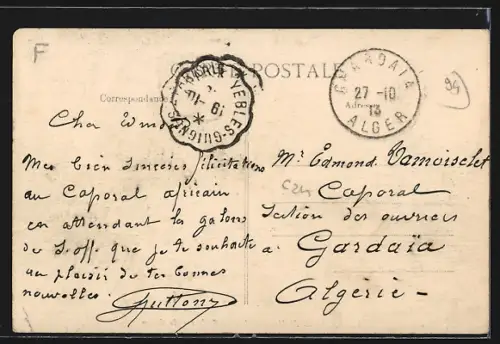 F
CARTE POSTALE
Correspondance
Adresse
YEBLES-GUIGNES A PARIS
GHARDAÏA
27-10
13
ALGER
Cher Edmond
Mes bien sincères félicitations
au Caporal africain
en attendant les galons
de S.off. que je te souhaite
au plaisir de tes bonnes
nouvelles.
Mr Edmond Vamoisclet
Caporal
Section des ouvriers
à Gardaïa
Algérie -